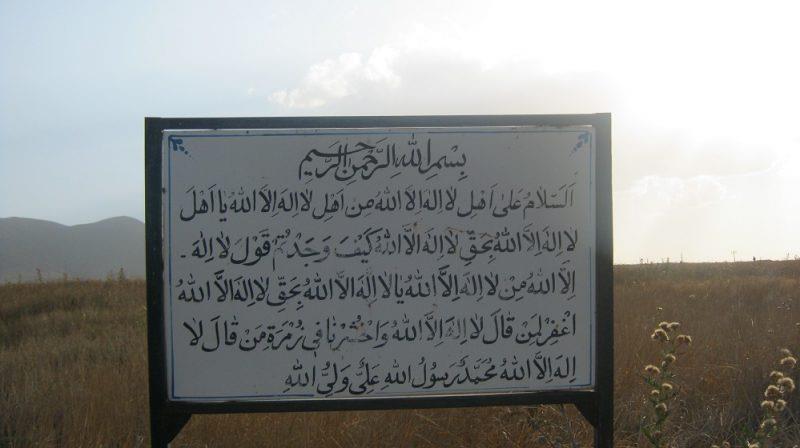 بِسْمِ اللهِ الرَّحْمنِ الرَّحیمِ
اَلسَّلامُ عَلی اَهْلِ لا اِلهَ اِلاَّ اللهُ مِن اَهْلِ لا اِلهَ اِلاَّ اللهُ یا اَهْلَ
لا اِلهَ اِلاَّ اللهُ بِحَقِّ لا اِلهَ اِلاَّ اللهُ کَیْفَ وَجَدْتُمْ قَوْلَ لا اِلهَ -
اِلاَّ اللهُ مِنْ لا اِلهَ اِلاَّ اللهُ یا لا اِلهَ اِلاَّ اللهُ بِحَقِّ لا اِلهَ اِلاَّ اللهُ
اغْفِرْ لِمَنْ قالَ لا اِلهَ اِلاَّ اللهُ وَاحْشُرْنا فی زُمْرَةِ مَنْ قالَ لا
اِلهَ اِلاَّ اللهُ مُحَمَّدٌ رَسُولُ اللهِ عَلِیٌّ وَلِیُّ اللهِ